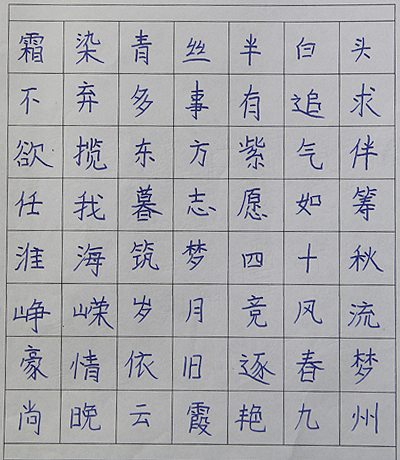 霜染青丝半白头
不弃多事有追求
欲揽东方紫气伴
任我暮志愿如筹
淮海筑梦四十秋
峥嵘岁月竞风流
豪情依旧逐春梦
尚晚云霞艳九州